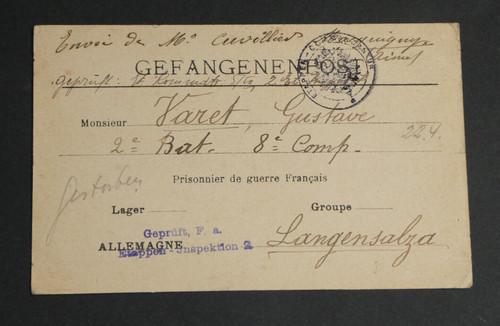 Envoi de Mr Cuvillier
GEFANGENENPOST
Geprüft:
Monsieur Varet, Gustave
2e Bat. 8e Comp.
22.4.
Gestorben
Prisonnier de guerre Français
Lager Groupe
Geprüft, F. a.
ALLEMAGNE Langensalza
Etappen-Inspektion 2